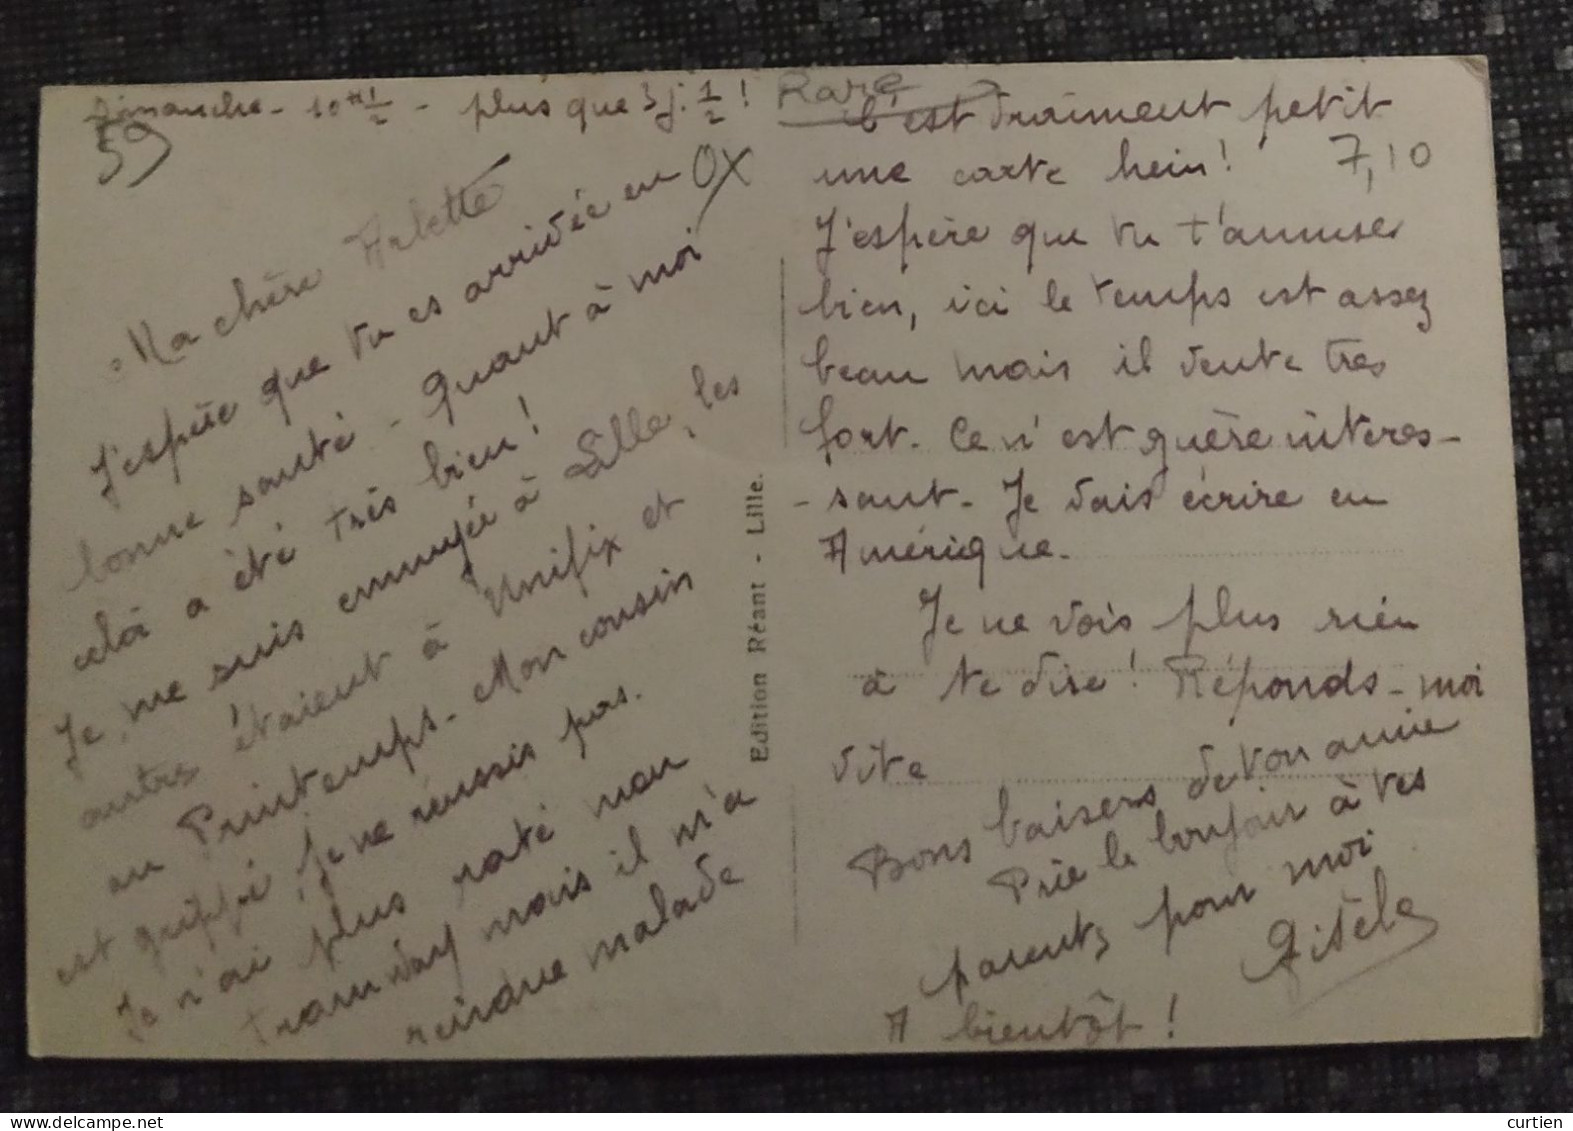 Dimanche - 10 H 1/2 - plus que 3 j. 1/2 !
59
Ma chère Arlette
J'espère que tu es arrivée en
bonne santé - Quant à moi
cela a été très bien !
Je me suis ennuyée à Lille, les
autres étaient à Unifix et
au Printemps - Mon cousin
est grippé, je ne réussis pas.
Je n'ai plus raté mon
tramway mais il m'a
rendue malade
Edition Réant - Lille.
Rare
C'est vraiment petit
une carte hein !
7,10
J'espère que tu t'amuses
bien, ici le temps est assez
beau mais il vente très
fort - Ce n'est guère intéres-
-sant - Je vais écrire en
Amérique -
Je ne vois plus rien
à te dire ! Réponds-moi
vite
Bons baisers de ton amie
le bonjour à tes
parents pour moi
Gisèle
A bientôt !
curtien